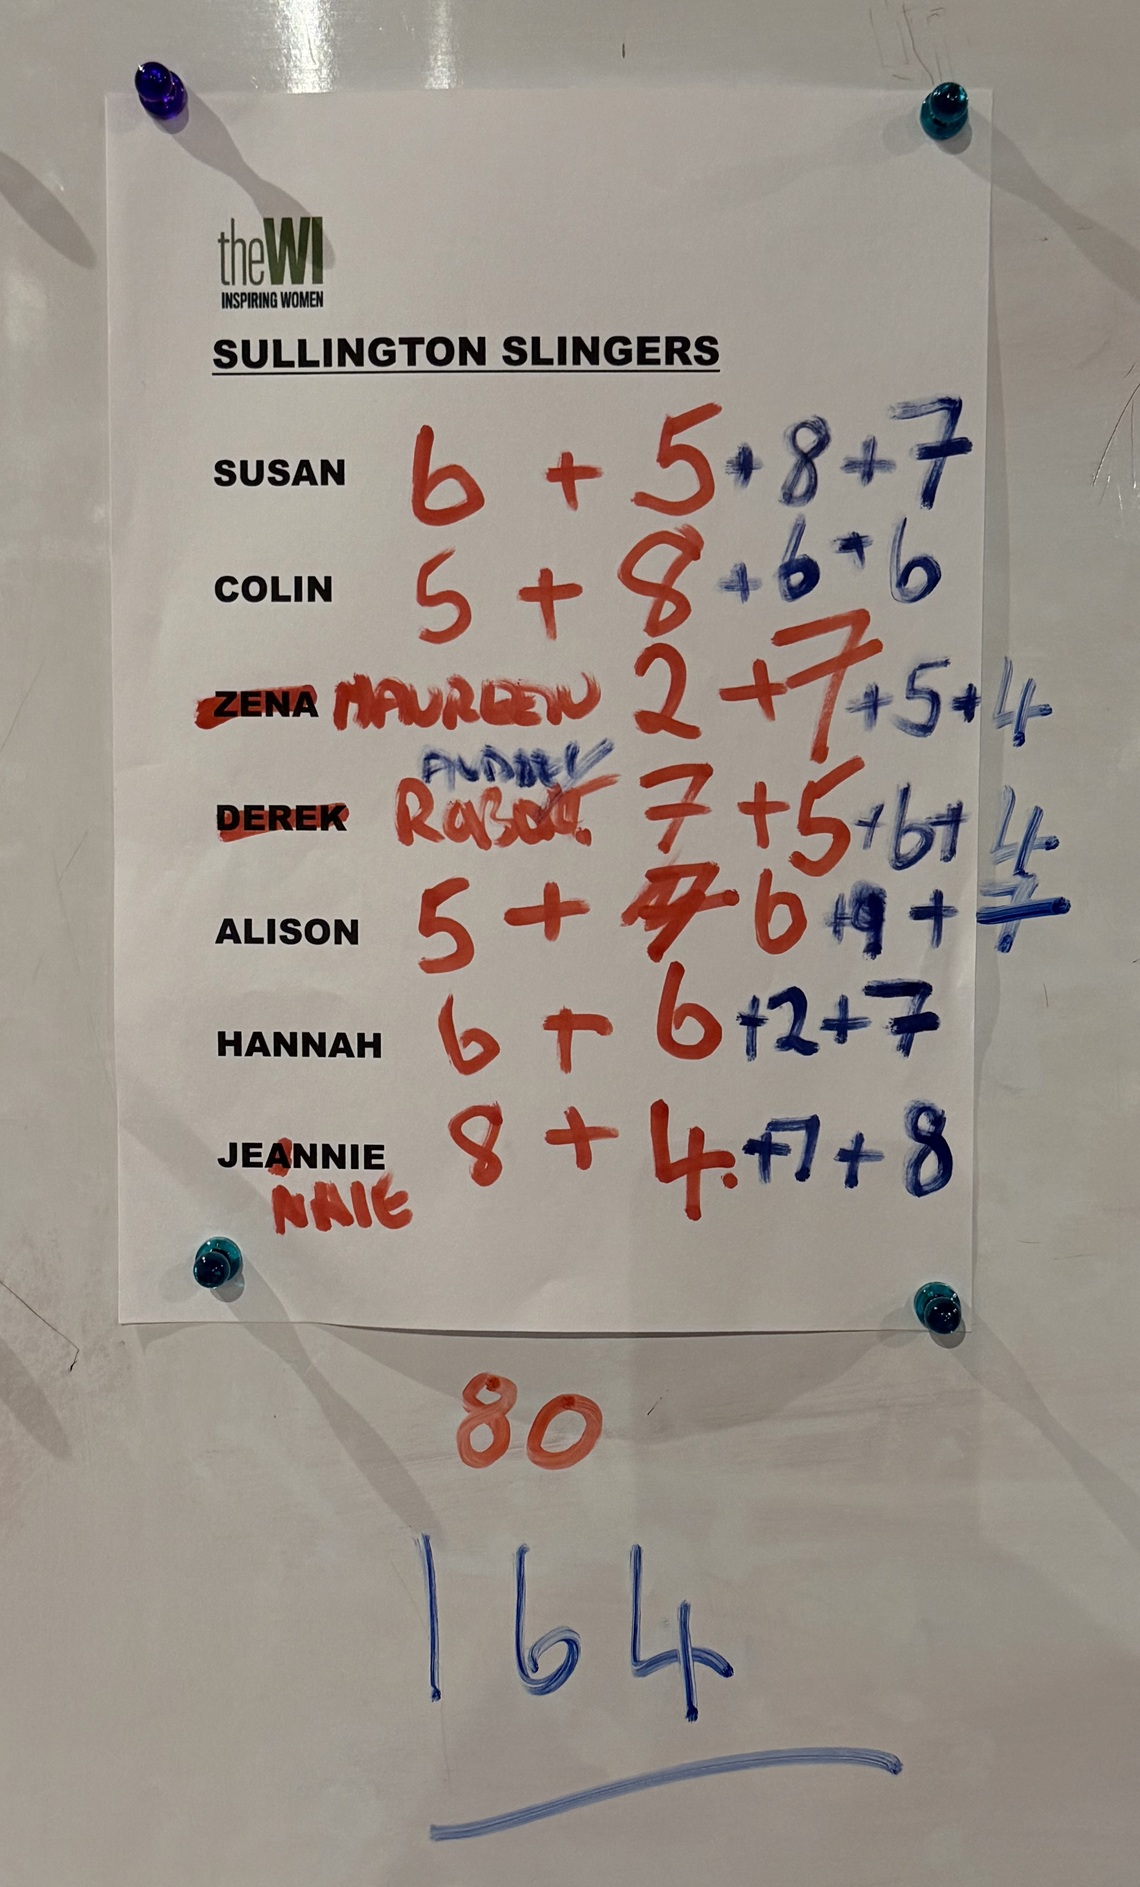 theWI
INSPIRING WOMEN
SULLINGTON SLINGERS
SUSAN 6 + 5 + 8 + 7
COLIN 5 + 8 + 6 + 6
ZENA MAUREEN 2 + 7 + 5 + 4
AUDREY
DEREK 7 + 5 + 6 + 4
ALISON 5 + 7 6 + 9 + 7
HANNAH 6 + 6 + 2 + 7
JEANNIE 8 + 4. + 7 + 8
NNIE
80
164